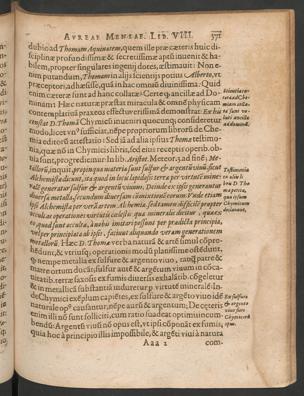 AVREAE MENSAE. LIB. VIII. 371
dubio ad Thomam Aquinatem, quem ille præ cæteris huic di-
sciplinæ profundissimæ & secretissimæ aptū inuenit & ha-
bilem, propter singulares ingenij dotes, æstimauit: Non e-
nim putandum, Thomam in alijs scientijs potius Alberto, vt
præceptori, adhæsisse, quā in hac omniū diuinissima: Quid
enim cæteræ sunt ad hanc collatæ? Certe q ancillæ ad Do-
minam: Hæc naturæ præstat miracula & omnē physicam
contemplatiuā praxeos effectu verissimā demonstrat: Ex his
cur D. Thomā Chymicū inuentū quoq;
modo, licet vn° sufficiat, nēpe propriorum librorū de Che-
mia editorū attestatio: Sed iā ad alia ipsius Thomæ testimo-
nia, quæ nō in Chymicis libris, sed eius receptis operib. ob-
uia sunt, progrediemur: In lib. Aristot. Meteor. 3. ad finē; Me-
tallorū, inquit, propinqua materia sunt sulfur & argentū viuū, sicut
Alchemistæ dicunt, ita quod in locis lapidosis terræ per virtutē mine-
ralē generatur sulfur & argentū viuum, Deinde ex ipsis generantur
diuersa metalla, secundum diuersam cōmixtionē eorum: Vnde etiam
ipsi Alchemistæ per verā artem Alchemiæ, sed tamen difficilē propter
occultas operationes virtutis cælestis: quæ mineralis dicitur, quæ ex
eo quod sunt occultæ, à nobis imitari possunt per prædicta principia,
vel per principiata ab ipsis, faciunt aliquando veram generationem
metallorū. Hæc D. Thomæ verba naturā & artē simul cōpre-
hēdunt, & vtriusq; operationis modū planissime ostēdunt,
q° nempe metalla ex sulfure & argento viuo, tanq patre &
matre ortum ducāt: sulfur autē & argētum viuum in cōca-
uitatib. terræ saxosis ex fumis duntaxat exhalātib. cōgelētur
& in metallicā substantiā indurētur p virtutē mineralē: In-
de Chymici exēplum capiētes, ex sulfure & argēto viuo idē
naturale op° causantur, nēpe aurū & argentum; De cæteris
enim illi nō sunt solliciti, cum ratio suadeat optimū incum-
bendū: Argentū viuū nō opus est, vt ipsi cōponāt ex fumis,
quia hoc à principio illis impossibile, & argēti viui à natura
Aaa 2 com-
Testimonia
ex alio li
bro D. Tho
mæ petita,
quæ ipsum
Chymicum
declarant,
Ex sulfure
& argento
viuo fiunt
Chymicorū
opus.